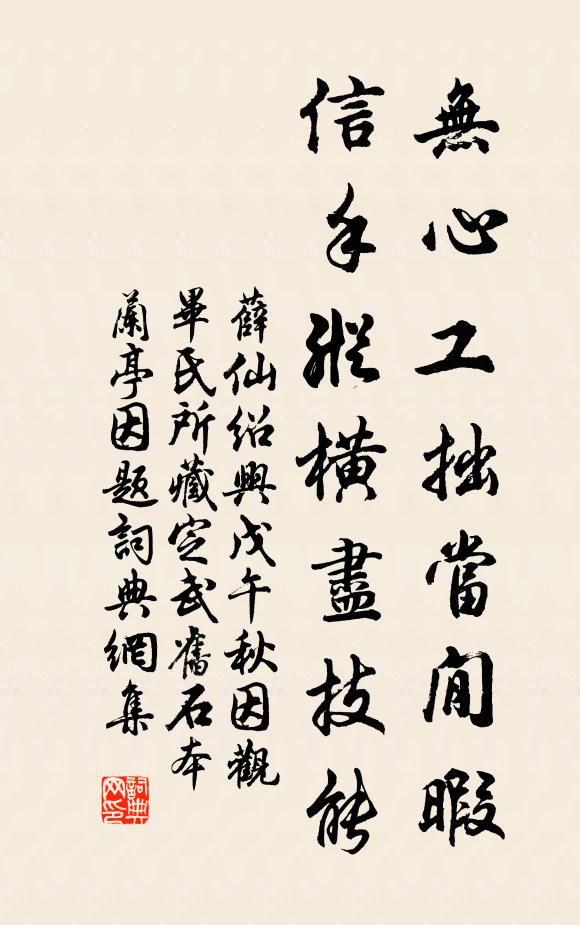 無心工拙當閒暇
信手縱橫盡技能
薛仙紹興戊午秋因觀
畢氏所藏定武舊石本
蘭亭因題詞典網集
詞典网印